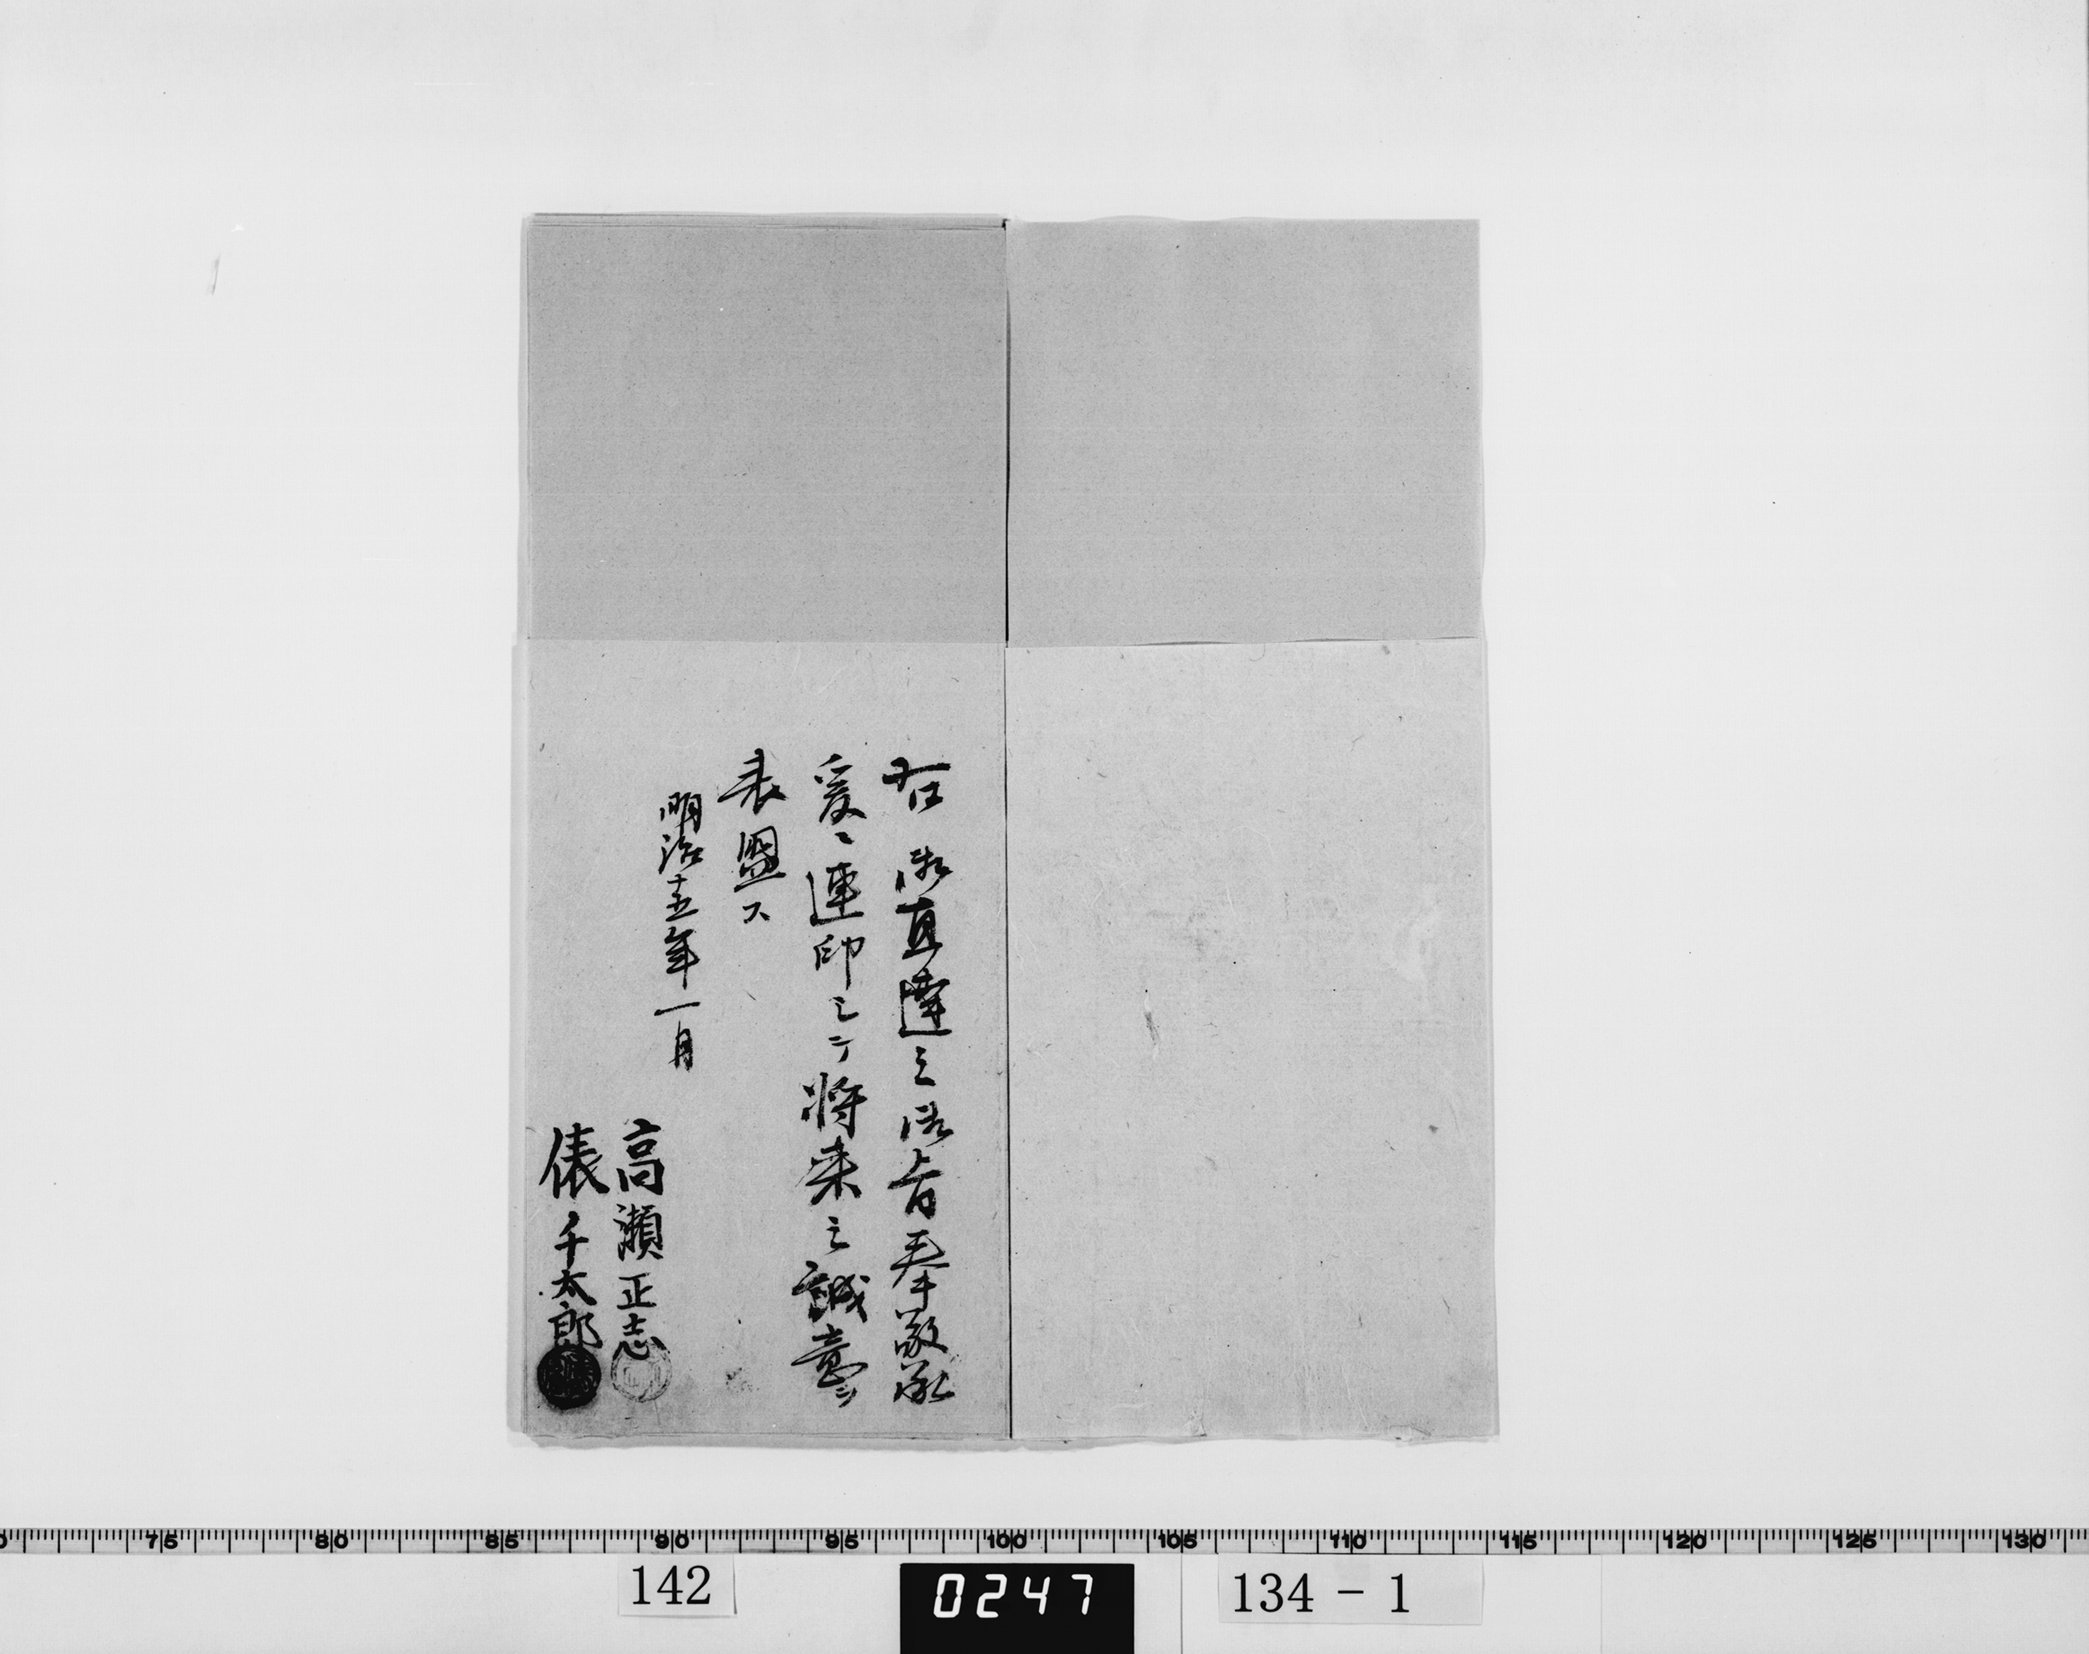 右御直達之御旨奉敬承
爰ニ連印シテ将来之誠意ヲ
表盟ス
明治十五年一月
高瀬正志
俵千太郎
75 80 85 90 95 100 105 110 115 120 125 130
142
0247
134-1